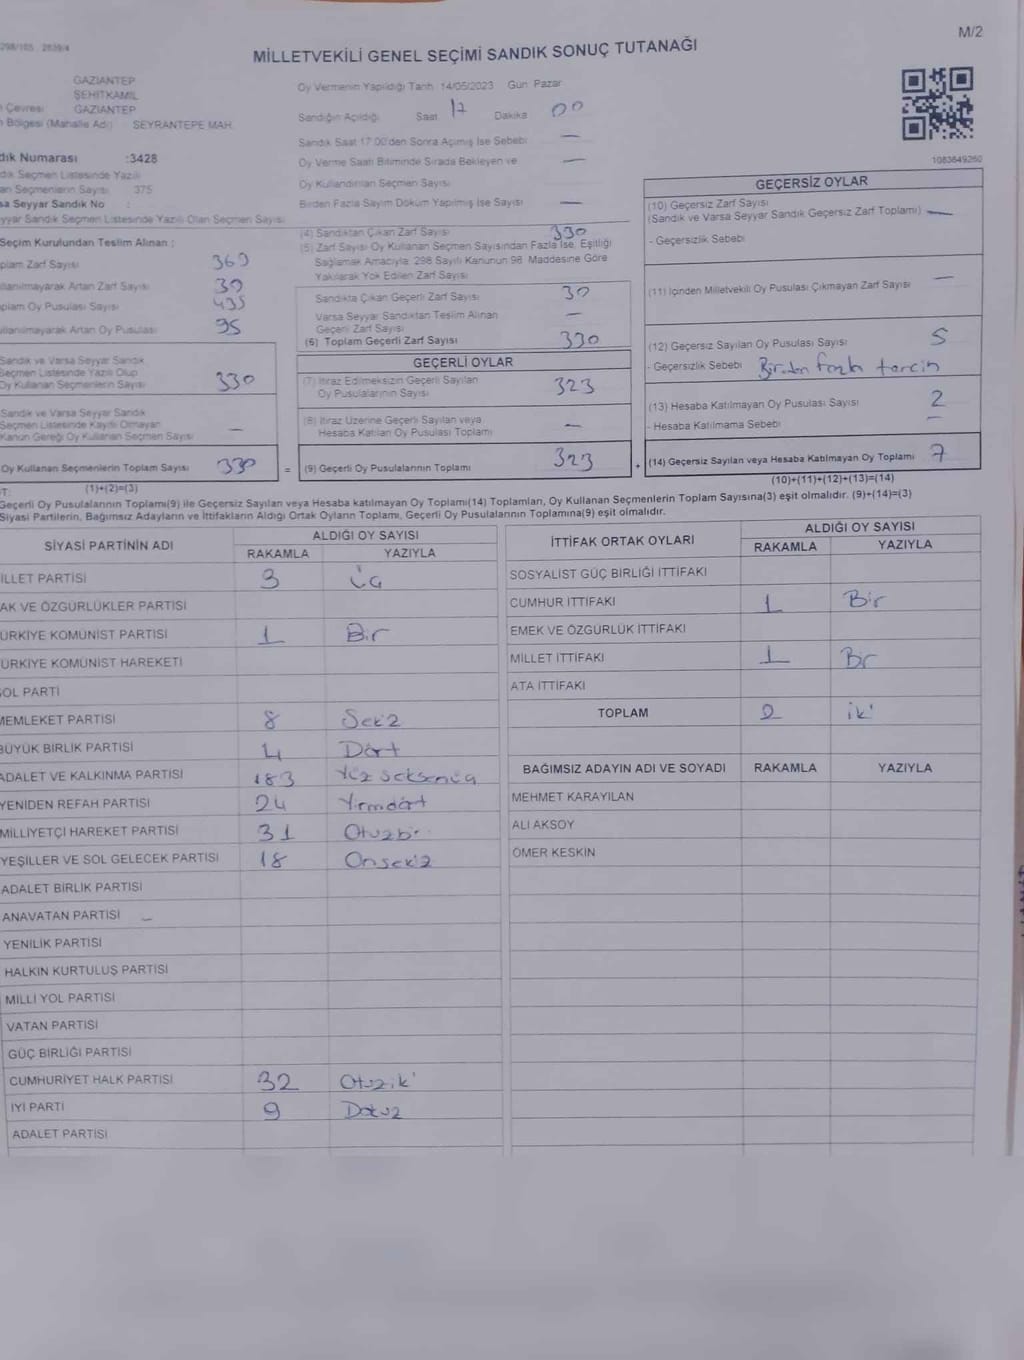 298/105 , 2839/4
M/2
MİLLETVEKİLİ GENEL SEÇİMİ SANDIK SONUÇ TUTANAĞI
GAZİANTEP
ŞEHİTKAMİL
Çevresi GAZİANTEP
Bölgesi (Mahalle Adı) SEYRANTEPE MAH.
dık Numarası :3428
dık Seçmen Listesinde Yazılı
an Seçmenlerin Sayısı 375
sa Seyyar Sandık No :
yyar Sandık Seçmen Listesinde Yazılı Olan Seçmen Sayısı
Seçim Kurulundan Teslim Alınan ;
plam Zarf Sayısı 360
llanılmayarak Artan Zarf Sayısı 30
oplam Oy Pusulası Sayısı 435
ullanılmayarak Artan Oy Pusulası 95
Sandık ve Varsa Seyyar Sandık
Seçmen Listesinde Yazılı Olup
Oy Kullanan Seçmenlerin Sayısı 330
Sandık ve Varsa Seyyar Sandık
Seçmen Listesinde Kayıtlı Olmayan
Kanun Gereği Oy Kullanan Seçmen Sayısı —
Oy Kullanan Seçmenlerin Toplam Sayısı 330
(1)+(2)=(3)
Oy Vermenin Yapıldığı Tarih: 14/05/2023 Gün: Pazar
Sandığın Açıldığı Saat 17 Dakika 00
Sandık Saat 17:00'den Sonra Açılmış İse Sebebi —
Oy Verme Saati Bitiminde Sırada Bekleyen ve —
Oy Kullandırılan Seçmen Sayısı
Birden Fazla Sayım Döküm Yapılmış İse Sayısı —
(4) Sandıktan Çıkan Zarf Sayısı 330
(5) Zarf Sayısı Oy Kullanan Seçmen Sayısından Fazla İse, Eşitliği
Sağlamak Amacıyla 298 Sayılı Kanunun 98. Maddesine Göre
Yakılarak Yok Edilen Zarf Sayısı
Sandıkta Çıkan Geçerli Zarf Sayısı 30
Varsa Seyyar Sandıktan Teslim Alınan —
Geçerli Zarf Sayısı
(6) Toplam Geçerli Zarf Sayısı 330
GEÇERLİ OYLAR
(7) İtiraz Edilmeksizin Geçerli Sayılan 323
Oy Pusulalarının Sayısı
(8) İtiraz Üzerine Geçerli Sayılan veya —
Hesaba Katılan Oy Pusulası Toplamı
= (9) Geçerli Oy Pusulalarının Toplamı 323 +
1083649260
GEÇERSİZ OYLAR
(10) Geçersiz Zarf Sayısı
(Sandık ve Varsa Seyyar Sandık Geçersiz Zarf Toplamı) —
- Geçersizlik Sebebi
(11) İçinden Milletvekili Oy Pusulası Çıkmayan Zarf Sayısı —
(12) Geçersiz Sayılan Oy Pusulası Sayısı 5
- Geçersizlik Sebebi Birden fazla tercih
(13) Hesaba Katılmayan Oy Pusulası Sayısı 2
- Hesaba Katılmama Sebebi —
(14) Geçersiz Sayılan veya Hesaba Katılmayan Oy Toplamı 7
(10)+(11)+(12)+(13)=(14)
T:
Geçerli Oy Pusulalarının Toplamı(9) ile Geçersiz Sayılan veya Hesaba katılmayan Oy Toplamı(14) Toplamları, Oy Kullanan Seçmenlerin Toplam Sayısına(3) eşit olmalıdır. (9)+(14)=(3)
Siyasi Partilerin, Bağımsız Adayların ve İttifakların Aldığı Ortak Oyların Toplamı, Geçerli Oy Pusulalarının Toplamına(9) eşit olmalıdır.
SİYASİ PARTİNİN ADI ALDIĞI OY SAYISI
RAKAMLA YAZIYLA
İLLET PARTİSİ 3 üç
AK VE ÖZGÜRLÜKLER PARTİSİ
ÜRKİYE KOMÜNİST PARTİSİ 1 Bir
ÜRKİYE KOMÜNİST HAREKETİ
SOL PARTİ
MEMLEKET PARTİSİ 8 Sekiz
BÜYÜK BİRLİK PARTİSİ 4 Dört
ADALET VE KALKINMA PARTİSİ 183 Yüz seksenüç
YENİDEN REFAH PARTİSİ 24 Yirmdört
MİLLİYETÇİ HAREKET PARTİSİ 31 Otuzbir
YEŞİLLER VE SOL GELECEK PARTİSİ 18 Onsekiz
ADALET BİRLİK PARTİSİ
ANAVATAN PARTİSİ —
YENİLİK PARTİSİ
HALKIN KURTULUŞ PARTİSİ
MİLLİ YOL PARTİSİ
VATAN PARTİSİ
GÜÇ BİRLİĞİ PARTİSİ
CUMHURİYET HALK PARTİSİ 32 Otuziki
İYİ PARTİ 9 Dokuz
ADALET PARTİSİ
İTTİFAK ORTAK OYLARI ALDIĞI OY SAYISI
RAKAMLA YAZIYLA
SOSYALİST GÜÇ BİRLİĞİ İTTİFAKI
CUMHUR İTTİFAKI 1 Bir
EMEK VE ÖZGÜRLÜK İTTİFAKI
MİLLET İTTİFAKI 1 Bir
ATA İTTİFAKI
TOPLAM 2 iki
BAĞIMSIZ ADAYIN ADI VE SOYADI RAKAMLA YAZIYLA
MEHMET KARAYILAN
ALİ AKSOY
ÖMER KESKİN